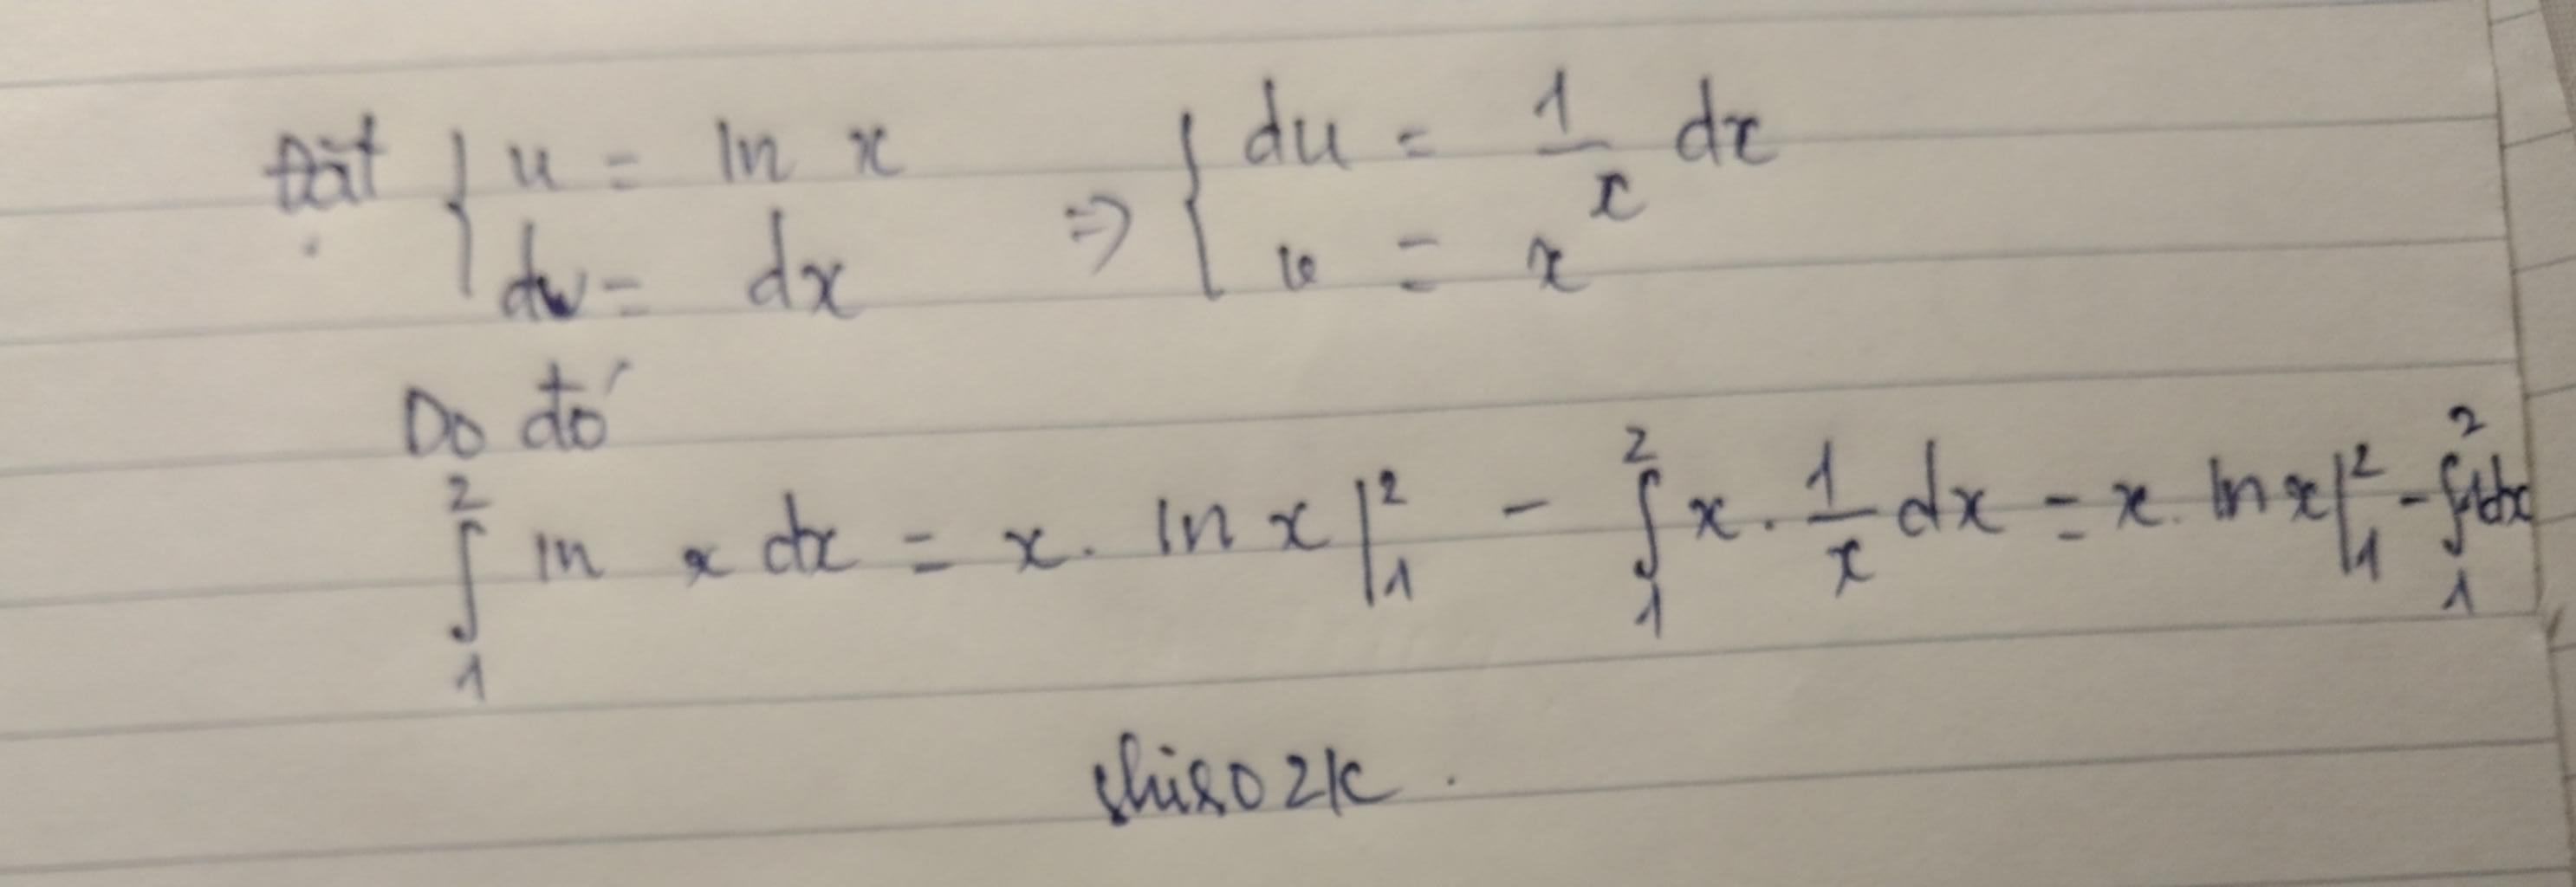 Đặt { u = ln x ⇒ { du = 1/x dx
dv = dx v = x
Do đó
∫₁² ln x dx = x. ln x |₁² - ∫₁² x . 1/x dx = x. ln x |₁² - ∫₁² 1dx
shiro2k .